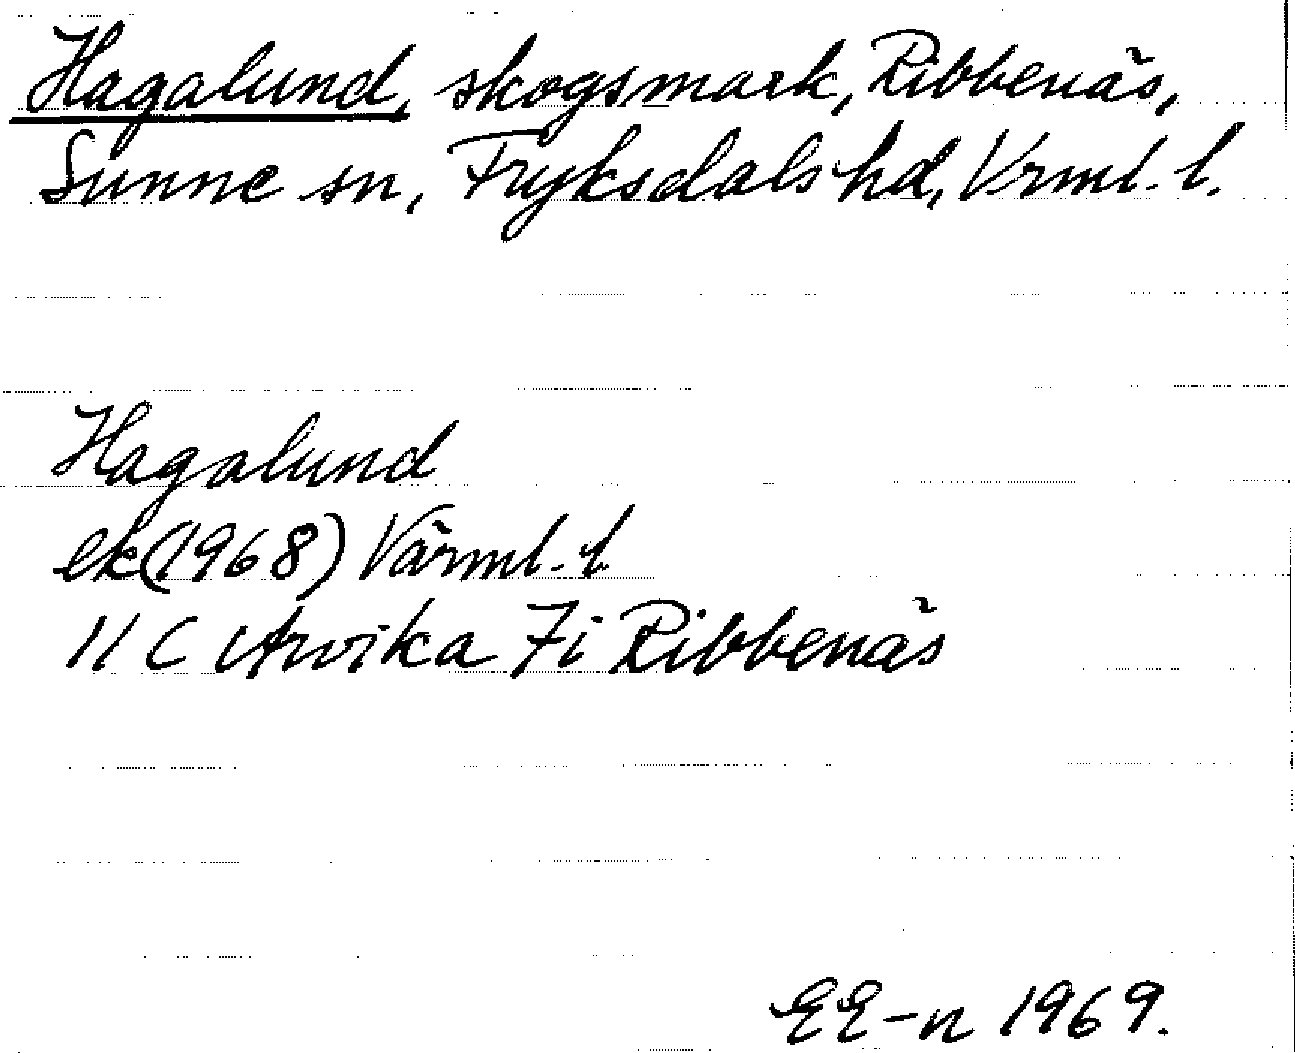 Hagalund, skogsmark, Ribbenäs,
Sunne sn, Fryksdals hd, Vrml. l.
Hagalund
ek (1968) Värml. l.
11 C Arvika 7i Ribbenäs
EE-n 1969.